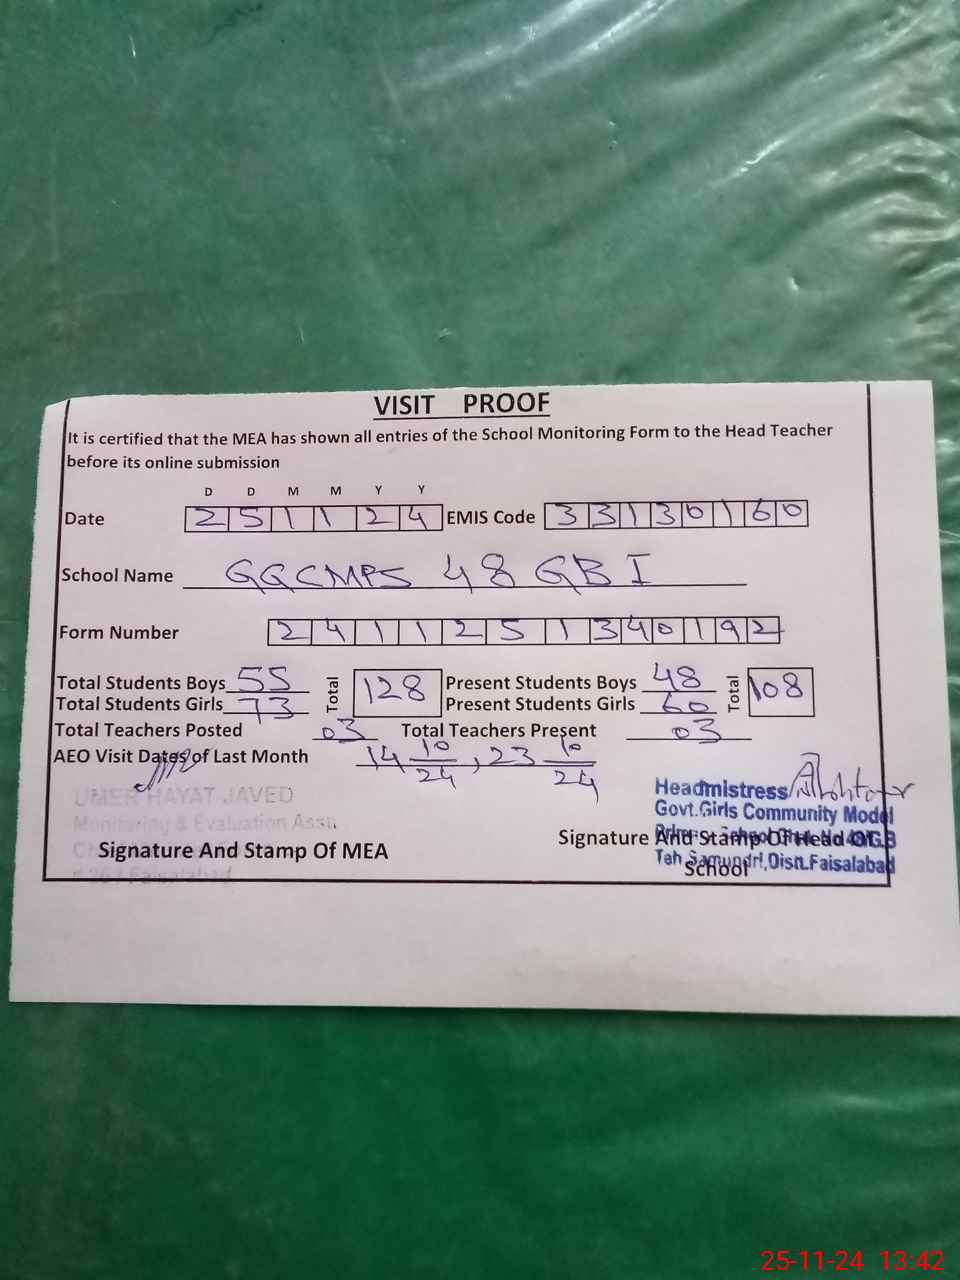 VISIT PROOF
It is certified that the MEA has shown all entries of the School Monitoring Form to the Head Teacher
before its online submission
D D M M Y Y
Date 2 5 1 1 2 4 EMIS Code 3 3 1 3 0 1 6 0
School Name GGCMPS 48 GB I
Form Number 2 4 1 1 2 5 1 3 4 0 1 9 2
Total Students Boys 55 Total 128 Present Students Boys 48 Total 108
Total Students Girls 73 Present Students Girls 60
Total Teachers Posted 03 Total Teachers Present 03
AEO Visit Dates of Last Month 14 10/24, 23 10/24
UMER HAYAT JAVED
Monitoring & Evaluation Asstt
Headmistress
Govt.Girls Community Model
Signature And Stamp Of MEA
Signature And Stamp Of Head Of
School
Teh Samundri,Distt.Faisalabad
Faisalabad
25-11-24 13:42